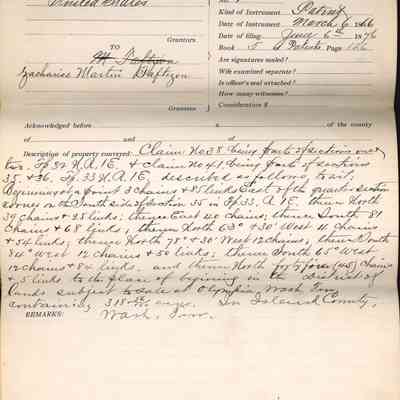 United States
Grantors
TO
Zacharias Martin Taftezon
Grantees
Kind of Instrument Patent
Date of Instrument March 6 1866
Date of filing June 6th 1876
Book 5 of Patents Page 126
Are signatures sealed?
Wife examined separate?
Is officer's seal attached?
How many witnesses?
Consideration $
Acknowledged before a of the county
of and of
Description of property conveyed: Claim No 38 being parts of sections one &
two. Tp. 32 N.R. 1E. & Claim No 41 being parts of sections
35 & 36. Tp. 33 N.R. 1E, described as follows, to wit;
Beginning at a point 3 chains & 85 links East of the quarter section
corner on the South side of Section 35 in Tp. 33. R. 1E. thence North
39 chains & 35 links; thence East 40 chains; thence South 81
chains & 68 links, thence North 63° 30' West 11 chains
& 54 links; thence North 78° & 30' West 12 chains; thence South
84° West 12 chains & 50 links; thence South 65° West
12 chains & 84 links. and thence North forty five (45) chains
& 5 links to the place of beginning in the District of
Lands subject to sale at Olympia, Wash Ter,
containing 318 acres. In Island County,
REMARKS: Wash, Terr.